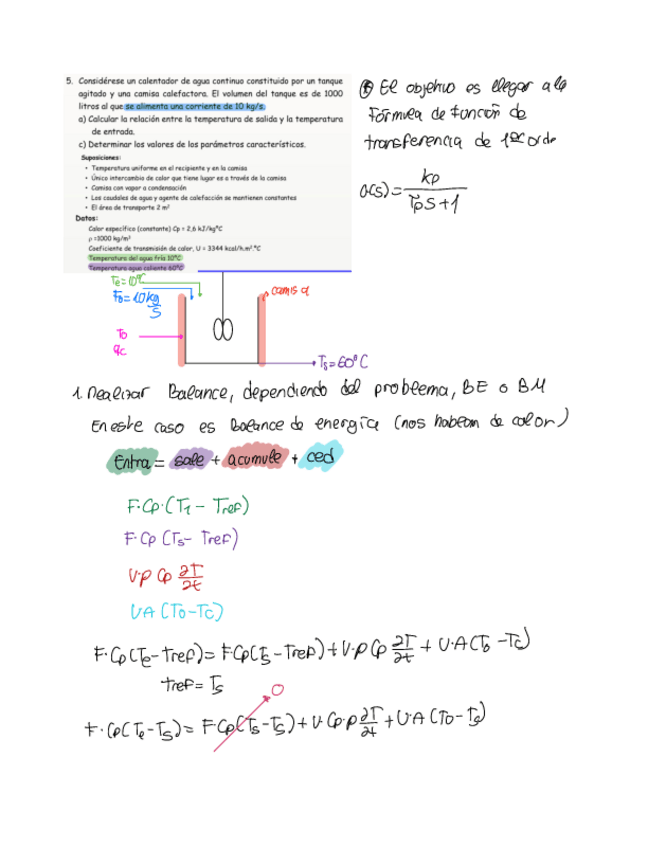 5. Considérese un calentador de agua continuo constituido por un tanque
agitado y una camisa calefactora. El volumen del tanque es de 1000
litros al que se alimenta una corriente de 10 kg/s.
a) Calcular la relación entre la temperatura de salida y la temperatura
de entrada.
c) Determinar los valores de los parámetros característicos.
Suposiciones:
• Temperatura uniforme en el recipiente y en la camisa
• Único intercambio de calor que tiene lugar es a través de la camisa
• Camisa con vapor a condensación
• Los caudales de agua y agente de calefacción se mantienen constantes
• El área de transporte 2 m²
Datos:
Calor específico (constante) Cp = 2,6 kJ/kg°C
ρ =1000 kg/m³
Coeficiente de transmisión de calor, U = 3344 kcal/h.m².°C
Temperatura del agua fría 10°C
Temperatura agua caliente 60°C
El objetivo es llegar a la
fórmula de función de
transferencia de 1er orde
G(s) = kp / (τp s + 1)
Te = 10°C
F0 = 10 kg/s
camisa
To
qc
Ts = 60°C
1. Realizar Balance, dependiendo del problema, BE o BM
En este caso es Balance de energía (nos hablan de calor)
Entra = sale + acumule + ced
F·Cp·(T1 - Tref)
F·Cp (Ts - Tref)
V·ρ Cp ∂T/∂t
UA (To - Tc)
F·Cp(Te - Tref) = F·Cp(Ts - Tref) + V·ρ Cp ∂T/∂t + U·A(To - Tc)
Tref = Ts
0
F·Cp(Te - Ts) = F·Cp(Ts - Ts) + V·Cp·ρ ∂T/∂t + U·A (To - Ts)